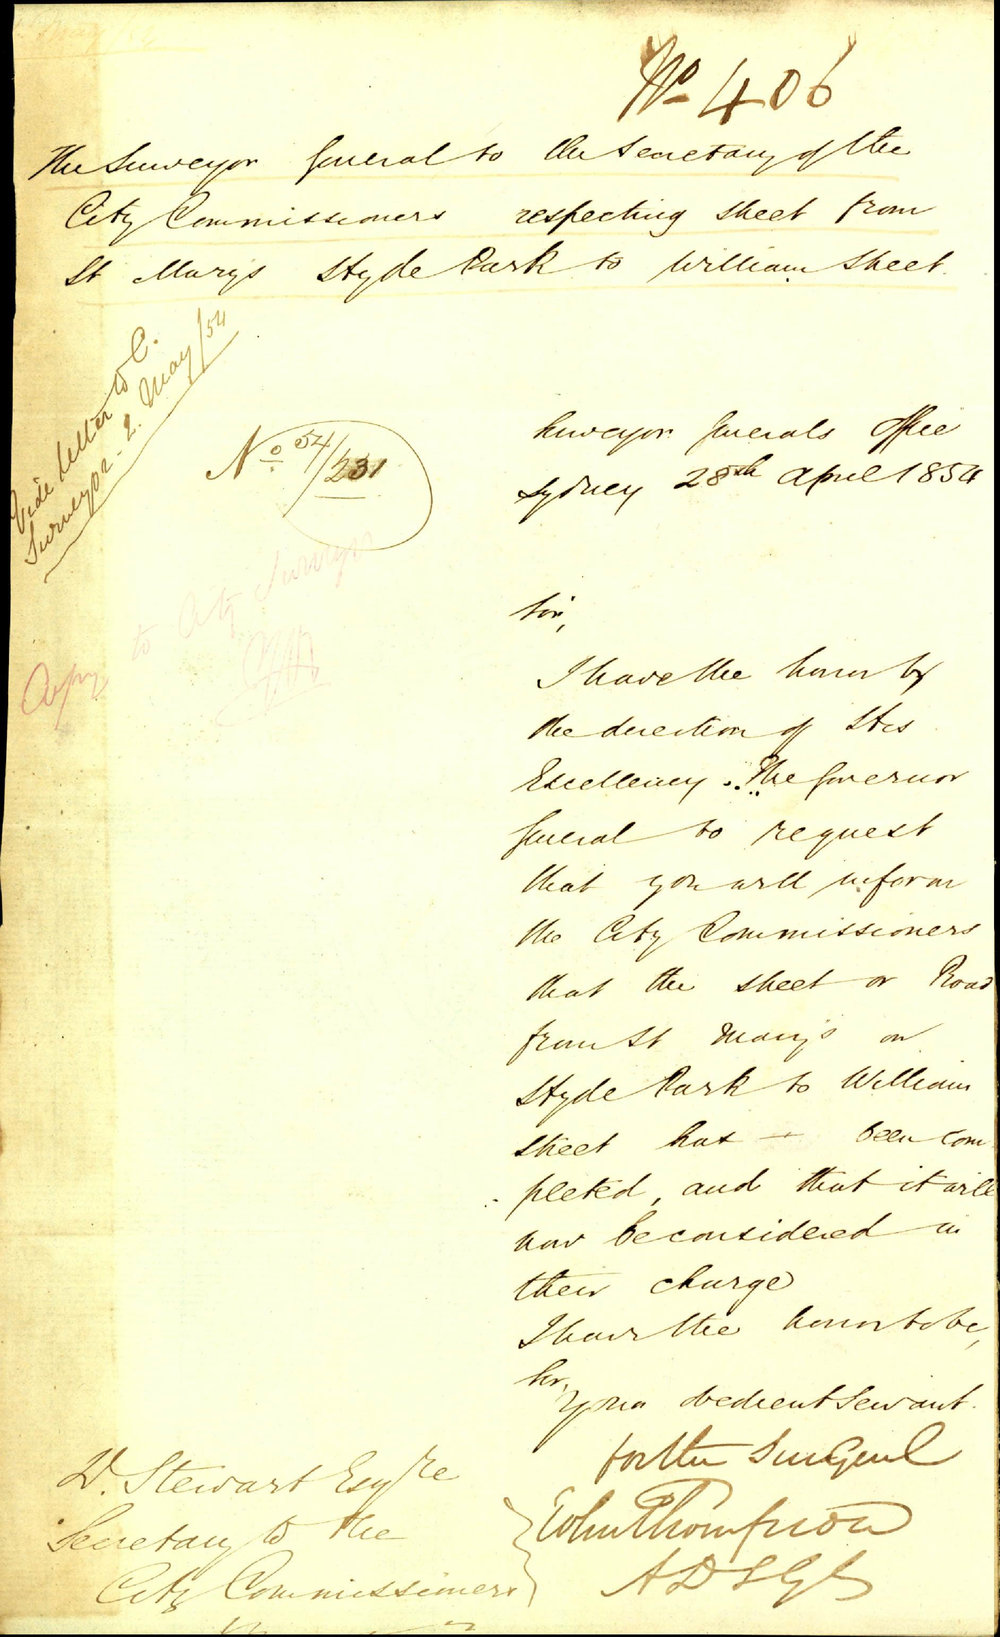 No 406
The Surveyor General to the Secretary of the
City Commissioners respecting street from
St Marys Hyde Park to William Street.
Vide letter to C.
Surveyor - 2. May/54
No. 54/231
Surveyor Generals Office
Sydney 28th April 1854
Copy to City Surveyor
Sir,
I have the honor by
the direction of His
Excellency The Governor
General to request
that you will inform
the City Commissioners
that the street or Road
from St Mary's on
Hyde Park to William
Street has been com
pleted, and that it will
now be considered in
their charge
I have the honor to be,
Sir,
Your obedient Servant.
for the Sur Genl
John Thompson
A D S Gl
W. Stewart Esqre
Secretary to the
City Commissioners